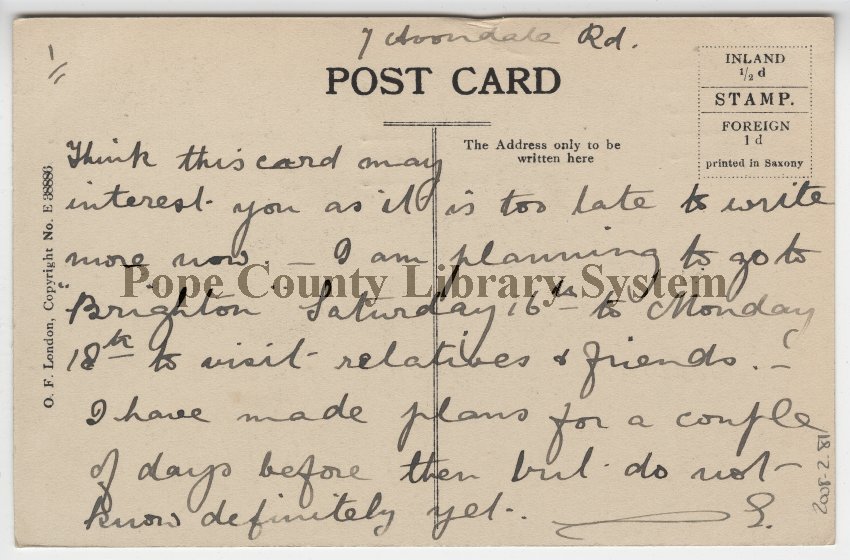 7 Avondale Rd.
POST CARD
INLAND
1/2 d
STAMP.
FOREIGN
1 d
printed in Saxony
The Address only to be
written here
O. F. London, Copyright No. E 38886
Think this card may
interest you as it is too late to write
more now. – I am planning to go to
"Brighton" Saturday 16th to Monday
18th to visit relatives & friends. –
I have made plans for a couple
of days before then but do not
know definitely yet.
Pope County Library System
2008.2.81